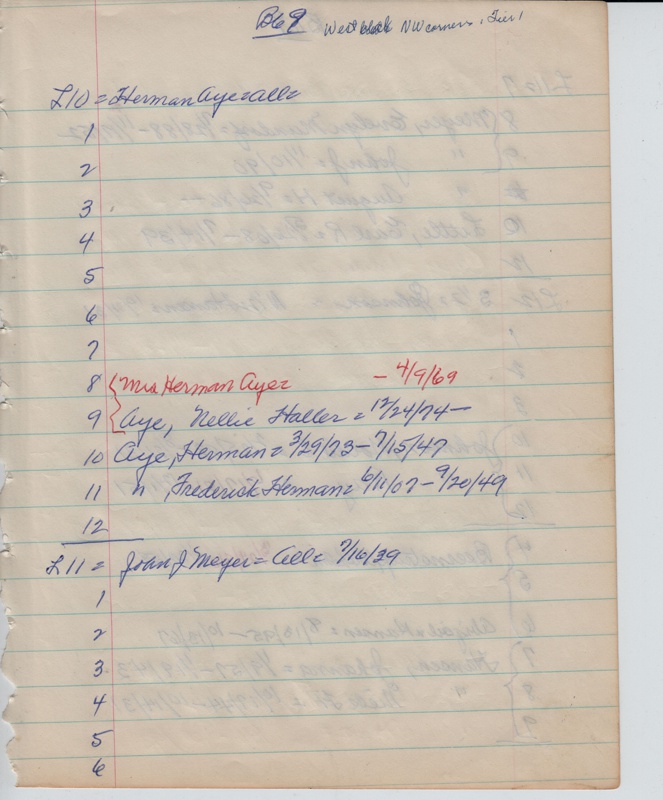 B69 West block NW corner, Tier 1
L10 = Herman Aye = all =
1
2
3
4
5
6
7
8 { Mrs Herman Aye = – 4/9/69
9 Aye, Nellie Haller = 12/24/74 –
10 Aye, Herman = 3/29/73 – 7/15/47
11 " , Frederick Herman = 6/11/07 – 9/20/49
12
L11 = John J Meyer = all = 7/16/39
1
2
3
4
5
6